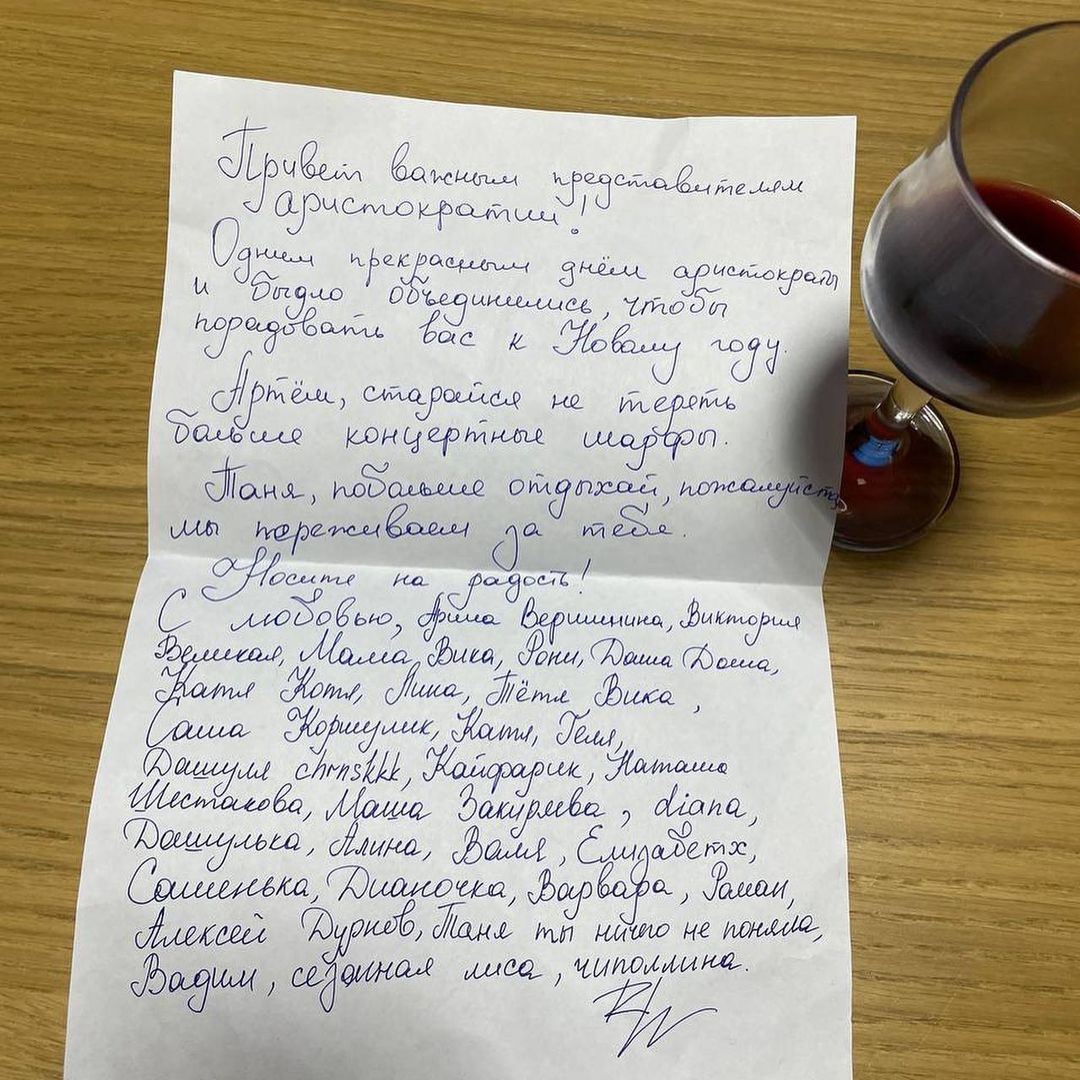 Привет важным представителям
аристократии!
Одним прекрасным днём аристократы
и быдло объединились, чтобы
порадовать вас к Новому году.
Артём, старайся не тереть
больше концертные шарфы.
Таня, побольше отдыхай, пожалуйста,
мы переживаем за тебя.
Носите на радость!
С любовью, Арина Вершинина, Виктория
Великая, Мама Вика, Рони, Даша Даша,
Катя Котя, Лина, Тётя Вика,
Саша Коршулик, Катя, Геля,
Дашуля chrnskkk, Кайфарик, Наташа
Шестакова, Маша Закиряева, diana,
Дашулька, Алина, Валя, Елизабетх,
Сашенька, Дианочка, Варвара, Роман,
Алексей Дурнев, Таня ты ничего не поняла,
Вадим, сезонная лиса, чиполлина.